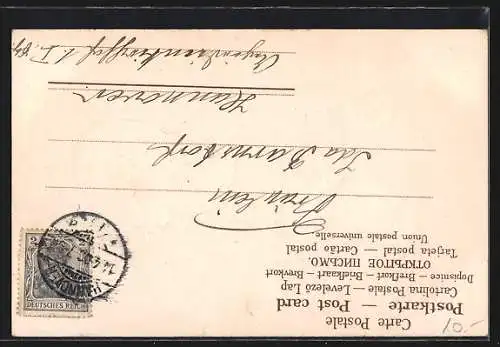 Carte Postale
Postkarte — Post card
Cartolina Postale — Levelező Lap
Dopisnice — Brefkort — Briefkaart — Brevkort
ОТКРЫТОЕ ПИСЬМО.
Tarjeta postal — Cartão postal
Union postale universelle.
Fräulein
Ida Barnstorf
Hannover.
DEUTSCHES REICH
HANNOVER
10.-